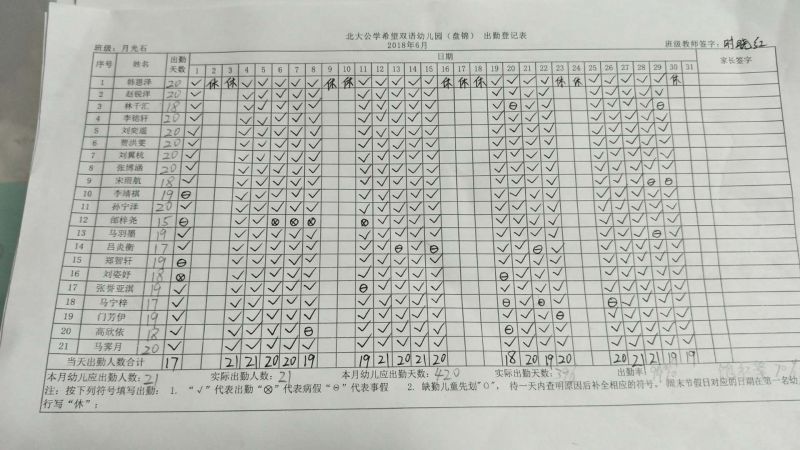 北大公学希望双语幼儿园（盘锦） 出勤登记表
2018年6月
班级：月光石
班级教师签字：
序号 姓名 出勤天数 日期 家长签字
1 2 3 4 5 6 7 8 9 10 11 12 13 14 15 16 17 18 19 20 21 22 23 24 25 26 27 28 29 30 31
1 韩恩泽 20 ✓ 休 休 ✓ ✓ ✓ ✓ ✓ 休 休 ✓ ✓ ✓ ✓ ✓ 休 休 休 ✓ ✓ ✓ ✓ 休 休 ✓ ✓ ✓ ✓ ✓ 休
2 赵锐洋 20
3 林千汇 18
4 李铭轩 20
5 刘奕遥 20
6 贾洪斐 20
7 刘冀杭 20
8 张博涵 20
9 宋雨航 18
10 李靖祺 19
11 孙宁泽 20
12 邵梓尧 15
13 马羽墨 19
14 吕炎衡 17
15 郑智轩 19
16 刘姿妤 18
17 张誉亚淇 19
18 马宁梓 17
19 门芳伊 19
20 高欣依 18
21 马霁月 20
当天出勤人数合计 17 21 21 20 20 19 19 21 20 21 20 18 20 19 20 20 21 21 19 19
本月幼儿应出勤人数：21 实际出勤人数：21 本月幼儿应出勤天数：420 实际出勤天数： 出勤率：
注：按下列符号填写出勤： 1. “✓”代表出勤“⊗”代表病假“⊖”代表事假 2. 缺勤儿童先划“○”， 待一天内查明原因后补全相应的符号。 周末节假日对应的日期在第一名幼
行写“休”；